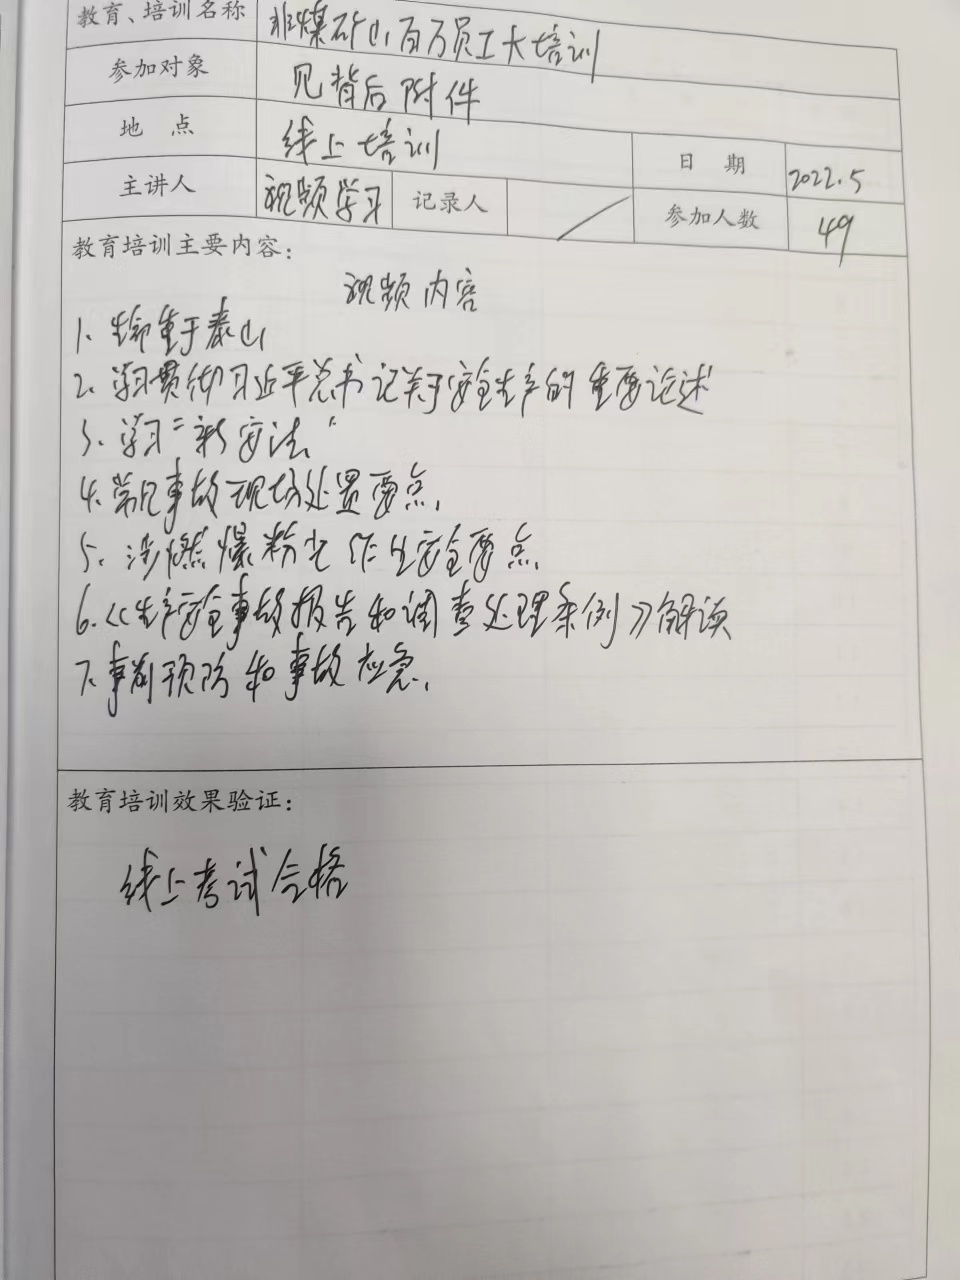 教育、培训名称 非煤矿山百万员工大培训
参加对象 见背后附件
地 点 线上培训 日 期 2022.5
主讲人 视频学习 记录人 / 参加人数 49
教育培训主要内容：
视频内容
1、生命重于泰山
2、学习贯彻习近平总书记关于安全生产的重要论述
3、学习“新安法”
4、常见事故现场处置要点、
5、涉燃爆粉尘作业安全要点、
6、《生产安全事故报告和调查处理条例》解读
7、事前预防和事故应急、
教育培训效果验证：
线上考试合格